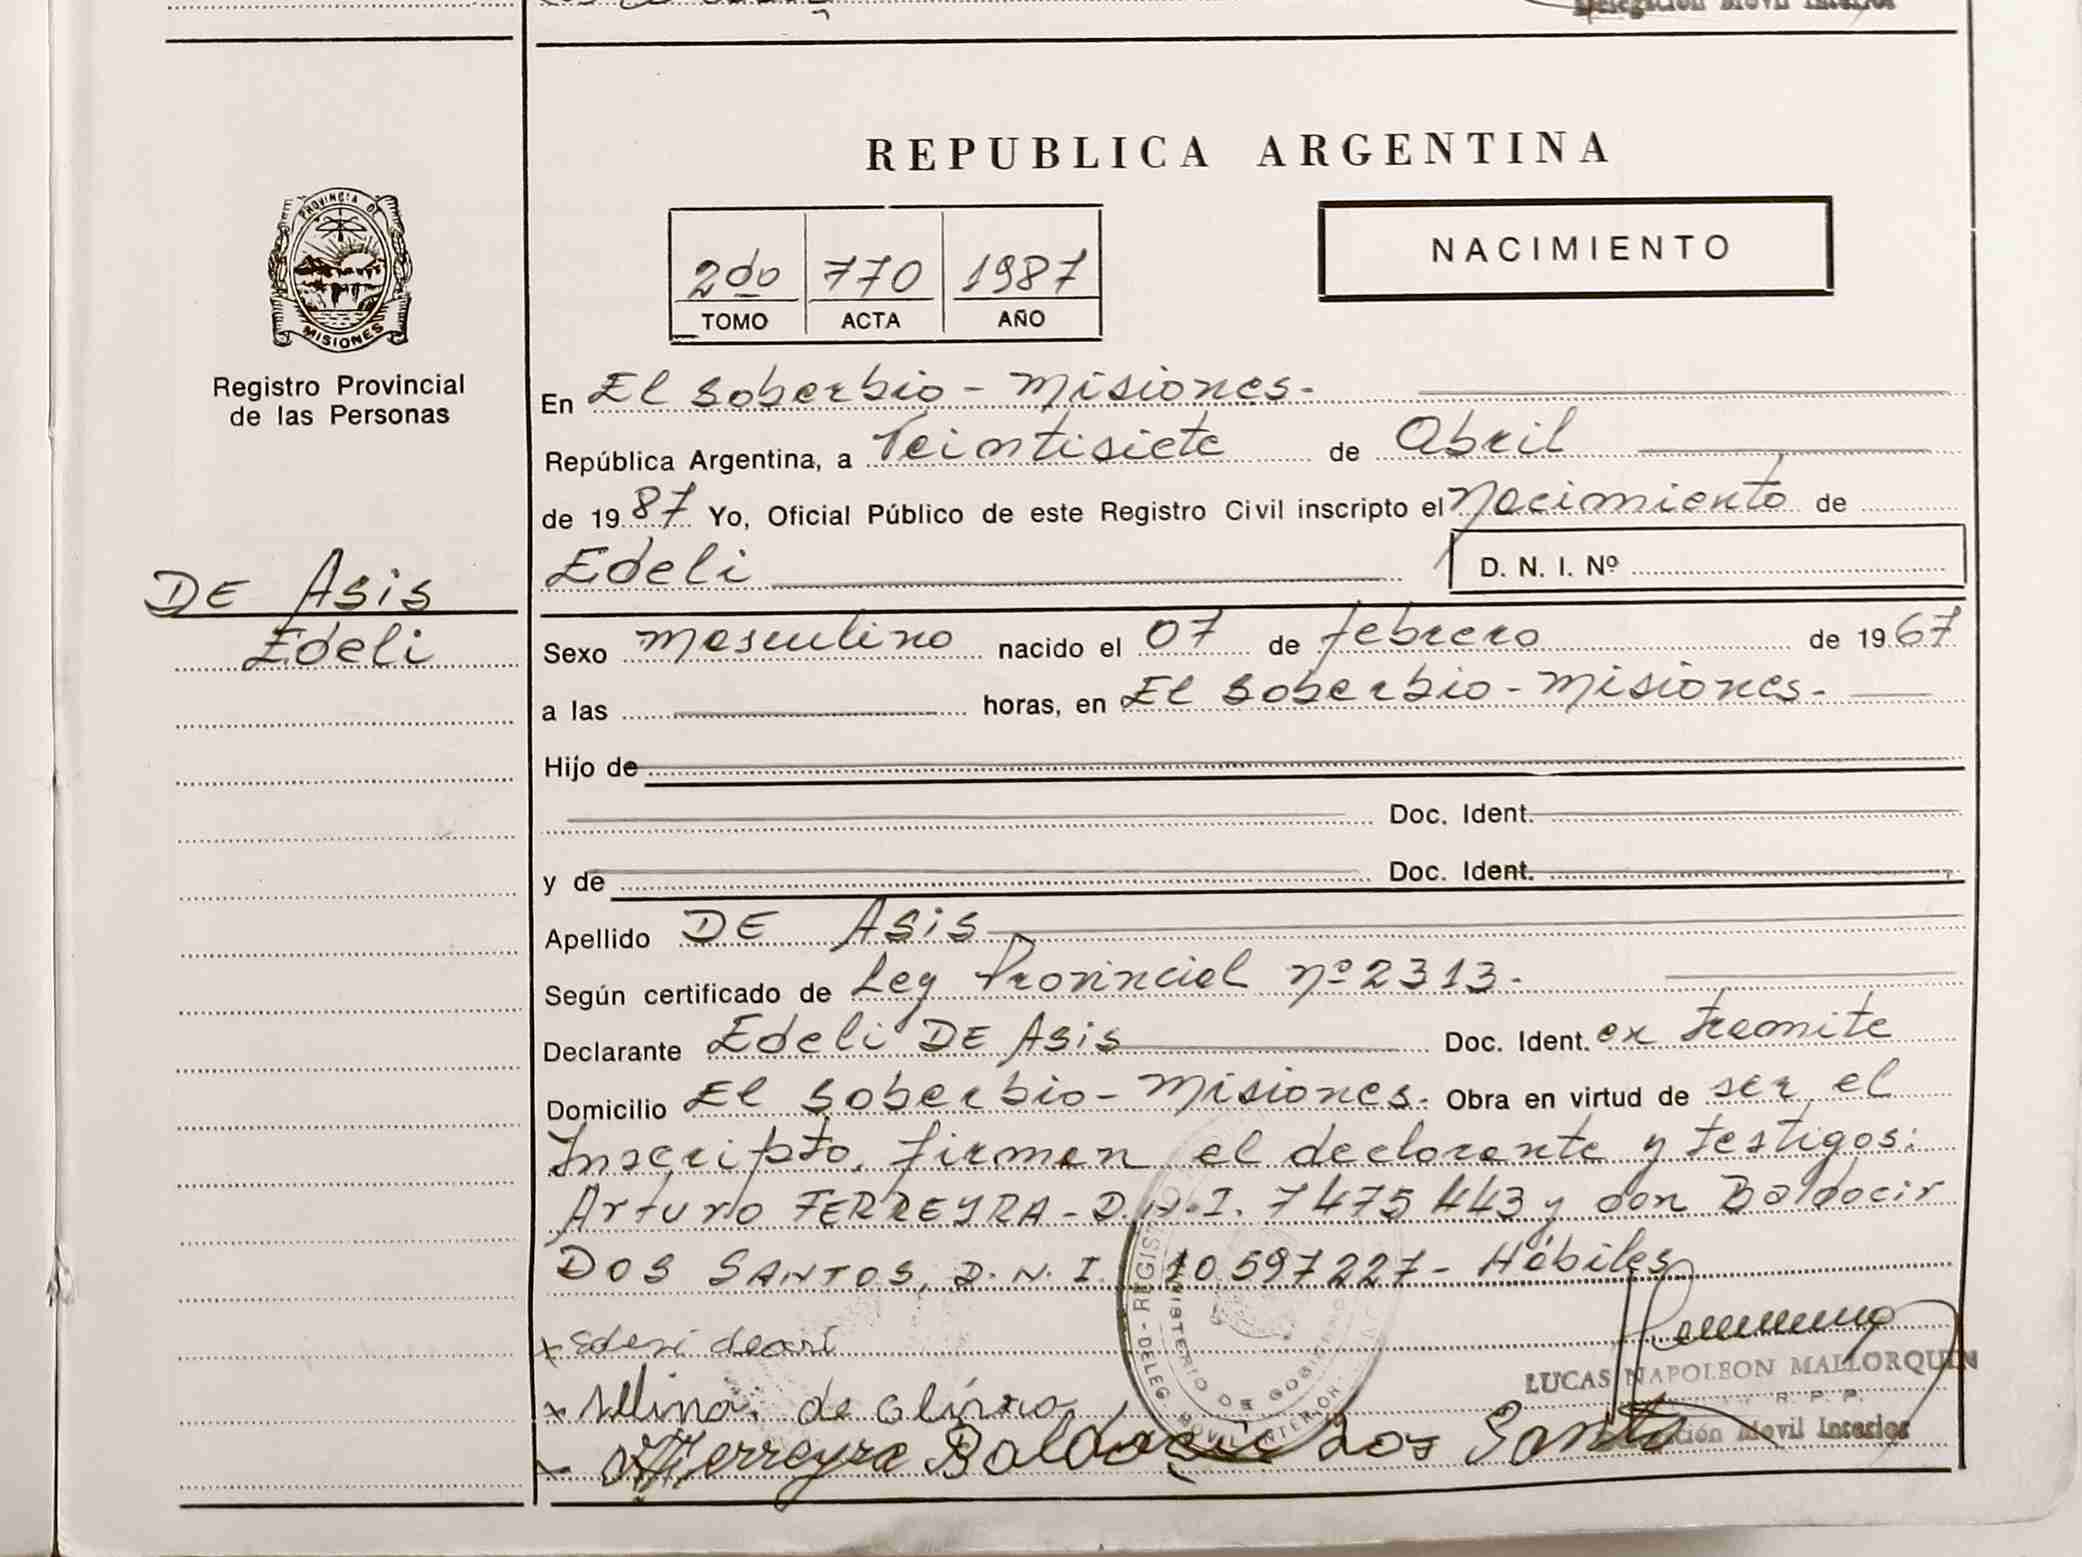 Delegación Movil Interior
REPUBLICA ARGENTINA
PROVINCIA DE
MISIONES
Registro Provincial
de las Personas
2do 770 1987
TOMO ACTA AÑO
NACIMIENTO
En El Soberbio - Misiones.
República Argentina, a Veintisiete de Abril
de 1987 Yo, Oficial Público de este Registro Civil inscripto el Nacimiento de
Edeli D. N. I. Nº
DE Asis
Edeli
Sexo masculino nacido el 07 de febrero de 1967
a las horas, en El Soberbio - Misiones.
Hijo de
Doc. Ident.
y de Doc. Ident.
Apellido DE Asis
Según certificado de Ley Provincial nº 2313.
Declarante Edeli DE Asis Doc. Ident. ex tramite
Domicilio El Soberbio - Misiones. Obra en virtud de ser el
Inscripto, firman el declarante y testigos:
Arturo FERREYRA - D.N.I. 7475443 y don Baldocir
DOS SANTOS, D.N.I. 10597227 - Hábiles
LUCAS NAPOLEON MALLORQUIN
R. P. P.
Delegación Movil Interior
Ferreyra Baldocir Dos Santo